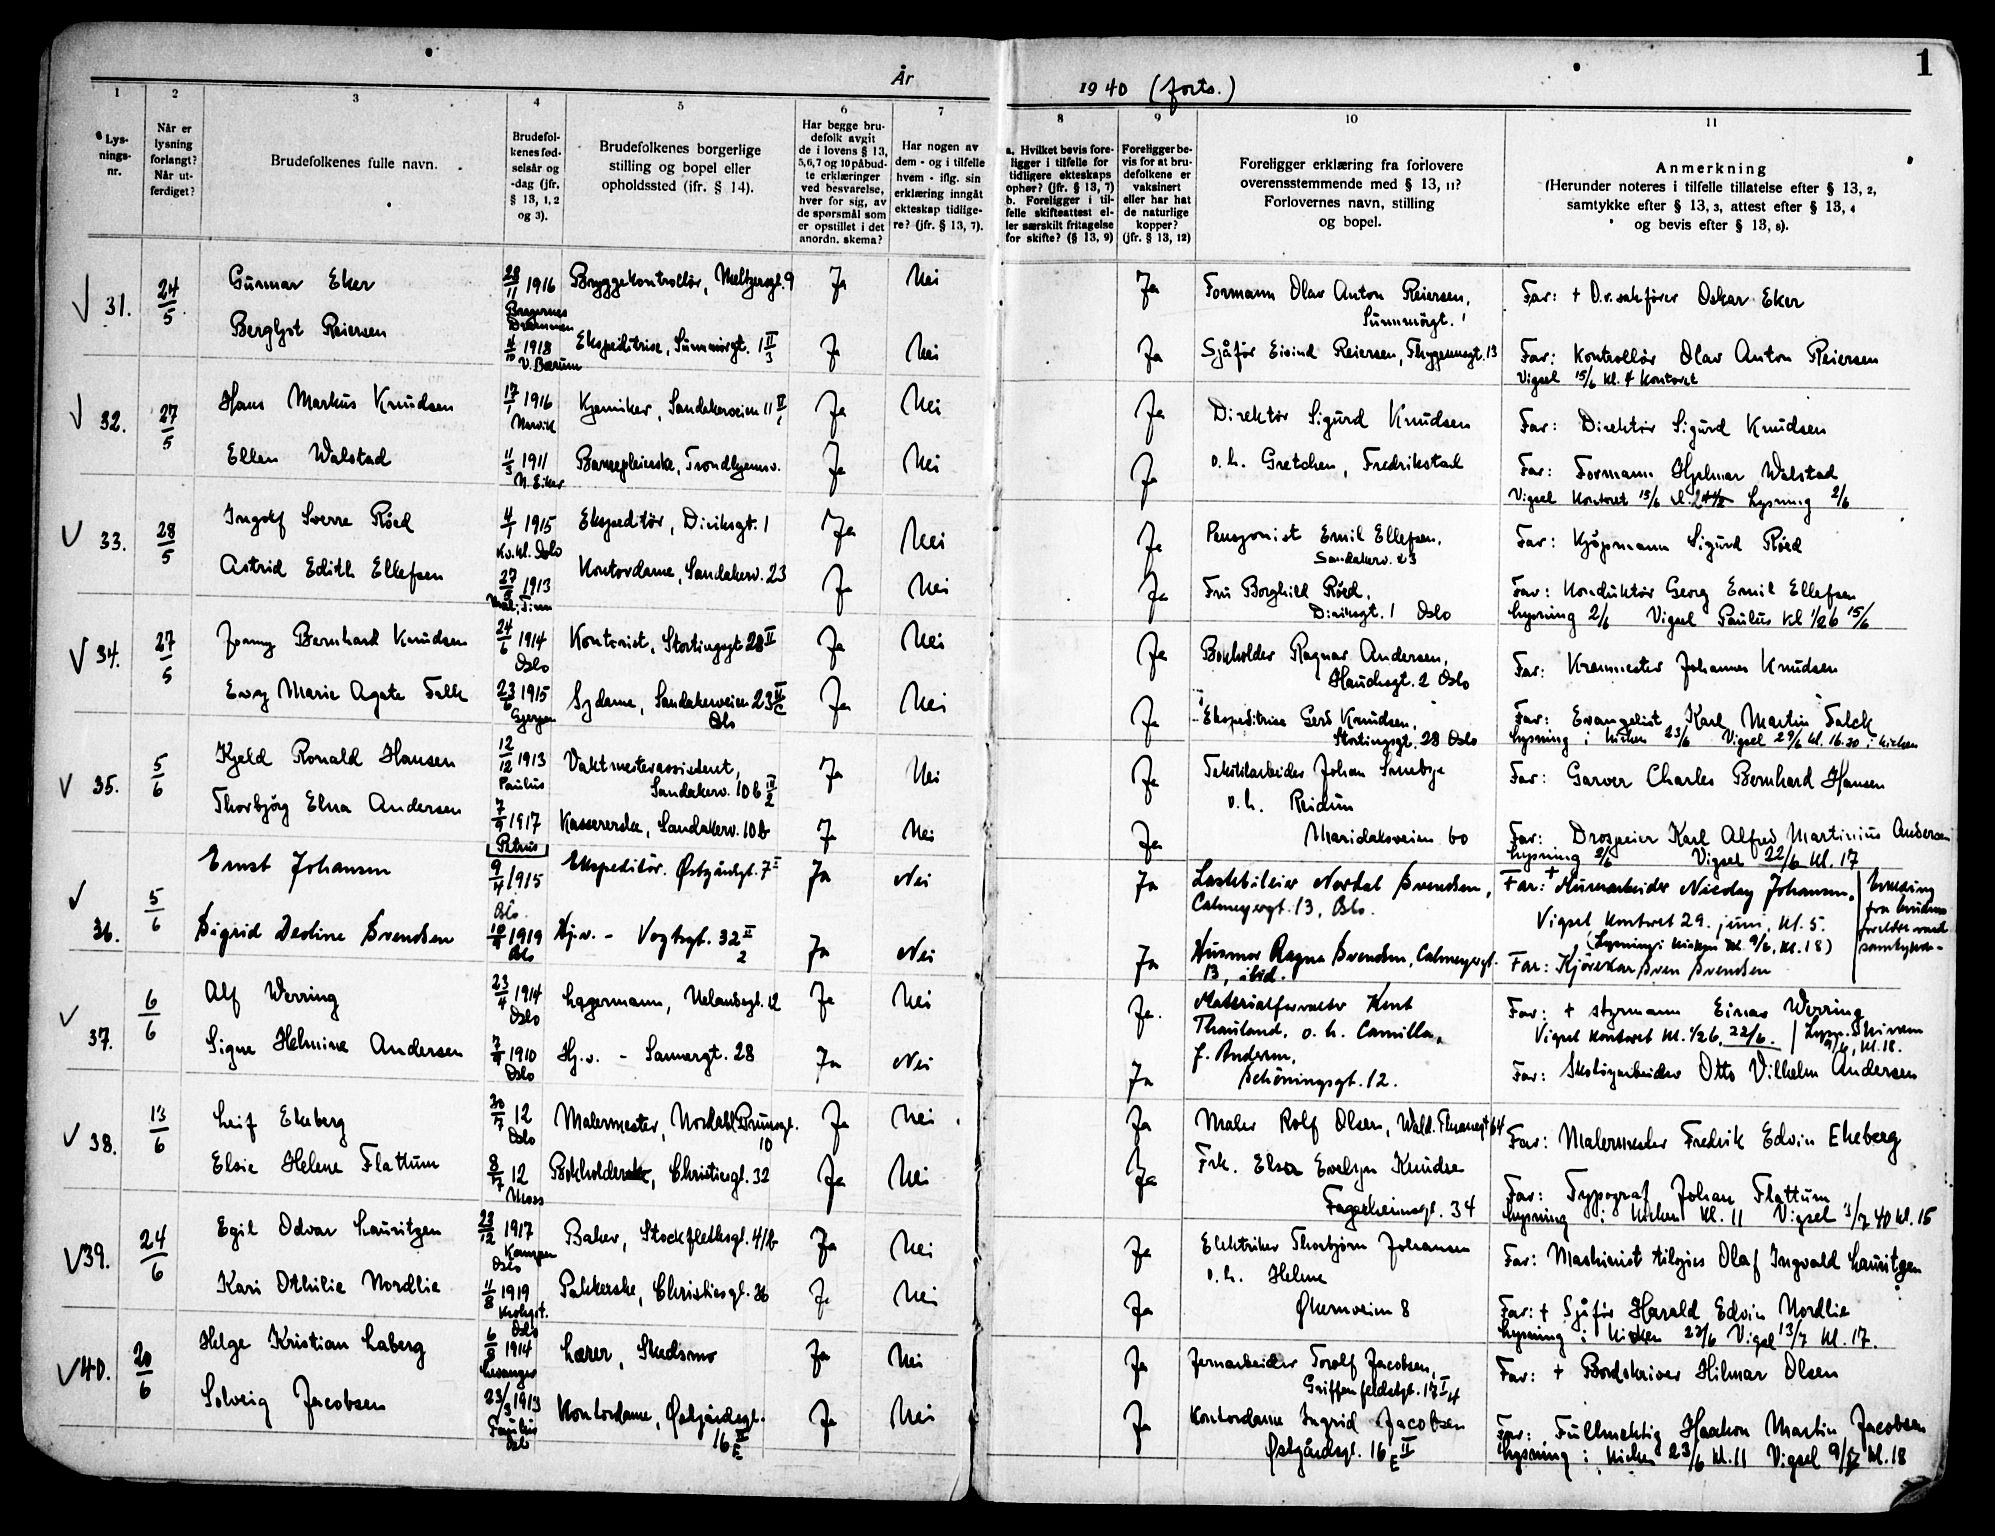 1
År
1940 (forts.)
1 2 3 4 5 6 7 8 9 10 11
Lys-
nings-
nr.
Når er
lysning
forlangt?
Når ut-
ferdiget?
Brudefolkenes fulle navn.
Brudefol-
kenes fød-
selsår og
-dag (jfr.
§ 13, 1, 2
og 3).
Brudefolkenes borgerlige
stilling og bopel eller
opholdssted (ifr. § 14).
Har begge bru-
defolk avgit
de i lovens § 13,
5,6,7 og 10 påbud-
te erklæringer
ved besvarelse,
hver for sig, av
de spørsmål som
er opstillet i det
anordn. skema?
Har nogen av
dem - og i tilfelle
hvem - iflg. sin
erklæring inngåt
ekteskap tidlige-
re? (jfr. § 13, 7).
a. Hvilket bevis fore-
ligger i tilfelle for
tidligere ekteskaps
ophør? (jfr. § 13, 7)
b. Foreligger i til-
felle skifteattest el-
ler særskilt fritagelse
for skifte? (§ 13, 9)
Foreligger be-
vis for at bru-
defolkene er
vaksinert
eller har hat
de naturlige
kopper?
(jfr. § 13, 12)
Foreligger erklæring fra forlovere
overensstemmende med § 13, 11?
Forlovernes navn, stilling
og bopel.
Anmerkning
(Herunder noteres i tilfelle tillatelse efter § 13, 2,
samtykke efter § 13, 3, attest efter § 13, 4
og bevis efter § 13, 8).
31. 24/5 Gunnar Eker 28/11 1916 Bragernes Drammen Bryggekontrollør, Meltzersgt. 9 Ja Nei Ja Formann Olav Anton Reiersen, Far: + O.r.sakfører Oskar Eker
Sunnmørgt. 1
Bergljot Reiersen 4/10 1918 V. Bærum Ekspeditrise, Sunnmørgt. 1 II/3 Ja Nei Ja Sjåfør Eivind Reiersen, Thygesensgt. 13 Far: Kontrollør Olav Anton Reiersen
Vigsel 15/6 kl. 4 Kontoret
32. 27/5 Hans Markus Knudsen 17/1 1916 Narvik Kjemiker, Sandakerveien 11 Ja Nei Ja Direktør Sigurd Knudsen Far: Direktør Sigurd Knudsen
Ellen Walstad 11/3 1911 N. Eiker Barnepleierske, Trondhjemsv. Ja Nei Ja o. h. Gretchen, Fredrikstad Far: Formann Hjalmar Walstad
Vigsel Kontoret 15/6 Lysning 2/6
33. 28/5 Ingolf Sverre Röed 1915 Oslo Ekspeditör, Diriksgt. 1 Ja Nei Ja Pensjonist Emil Ellefsen, Far: Kjøpmann Sigurd Röed
Sandakerv. 23
Astrid Edith Ellefsen 27/5 1913 Kontordame, Sandakerv. 23 Ja Nei Ja Fru Borghild Röed, Far: Konduktør Georg Emil Ellefsen
Diriksgt. 1 Oslo Lysning 2/6 Vigsel Paulus kl 1/2 6 15/6
34. 27/5 Jonny Bernhard Knudsen 24/6 1914 Oslo Kontorist, Stortingsgt 28 II Ja Nei Ja Bokholder Ragnar Andersen, Far: Kranmester Johannes Knudsen
Hauchsgt. 2 Oslo
Ewy Marie Agate Falk 23/6 1915 Sydame, Sandakerveien 23 Oslo Ja Nei Ja Ekspeditrise Gerd Knudsen, Far: Evangelist Karl Martin Falck
Stortingsgt. 28 Oslo Lysning i kirken 23/6 Vigsel 29/6 kl. 16.30 i kirken
35. 5/6 Kjeld Ronald Hansen 12/12 1913 Paulus Vaktmesterassistent, Ja Nei Ja Tekstilarbeider Johan Sneby Far: Garver Charles Bernhard Hansen
Sandakerv. 10 b III/2 o. h. Reidun
Thorbjørg Elna Andersen 7/9 1917 Petrus Kassererske, Sandakerv. 10b Ja Nei Ja Maridalsveien 60 Far: Drosjeeier Karl Alfred Martinius Andersen
Lysning 9/6 Vigsel 22/6 kl. 17
36. 5/6 Ernst Johansen 9/4 1915 Oslo. Ekspeditör. Østgårdsgt. 7 II Ja Nei Ja Lastebileier Nordal Svendsen, Far: + Murarbeider Nicolay Johansen.
Calmeyergt. 13, Oslo. Vigsel kontoret 29. juni, kl. 5.
(Lysning i kirken kl. 9/6, kl. 18)
Sigrid Desline Svendsen 10/8 1919 Oslo Hj.v. - Vogtsgt. 32 II/2 Ja Nei Ja Husmor Ragna Svendsen, Calmeyergt. Far: Kjørekar Sven Svendsen
13, ibid.
37. 6/6 Alf Werring 23/4 1914 Oslo Lagermann, Uelandsgt. 12 Ja Nei Ja. Materialforvalter Knut Far: + styrmann Einar Werring
Thauland, o. h. Camilla, Vigsel kontoret kl. 1/2 6, 22/6. kl. 18.
Signe Helmine Andersen 7/9 1910 Oslo Hj.v. - Sannergt. 28 Ja Nei Ja f. Andersen, Far: Skotøyarbeider Otto Vilhelm Andersen
Schöningsgt. 12.
38. 13/6 Leif Ekeberg 30/7 12 Oslo Malermester, Nordahl Brunsgt. 10 Ja Nei Ja Maler Rolf Olsen, Wald. Thranesgt 64 Far: Malermester Fredrik Edvin Ekeberg
Elsie Helene Flattum 8/7 12 Moss Bokholderske, Christiesgt. 32 Ja Nei Ja Frk. Elsa Evelyn Knudse Far: Typograf Johan Flattum
Fagerheimsgt. 34 Lysning i kirken kl. 11 Vigsel 3/7 40 kl. 15
39. 24/6 Egil Odvar Lauritzen 23/12 1917 Kampen Oslo Baker, Stockflethsgt. 41b Ja Nei Ja Elektriker Thorbjørn Johansen Far: Maskinist tilsjøs Olaf Ingvald Lauritzen
o. h. Helene
Kari Othilie Nordlie 11/8 1919 Oslo Pakkerske, Christiesgt. 36 Ja Nei Ja Økernveien 8 Far: + Sjåfør Harald Edvin Nordlie
Lysning i kirken 23/6 Vigsel 13/7 kl. 17.
40. 20/6 Helge Kristian Laberg 6/8 1914 Levanger Lærer, Skedsmo Ja Nei Ja Jernarbeider Torolf Jacobsen, Far: + Bordskriver Hilmar Olsen
Griffenfeldsgt. 17 I 4
Solveig Jacobsen 23/3 1913 Paulus Oslo Kontordame, Østgårdsgt. Ja Nei Ja Kontordame Ingrid Jacobsen Far: Fullmektig Haakon Martin Jacobsen
16 II E Østgårdsgt. 16 E II Lysning i kirken 23/6 kl. 11 Vigsel 9/7 kl. 18